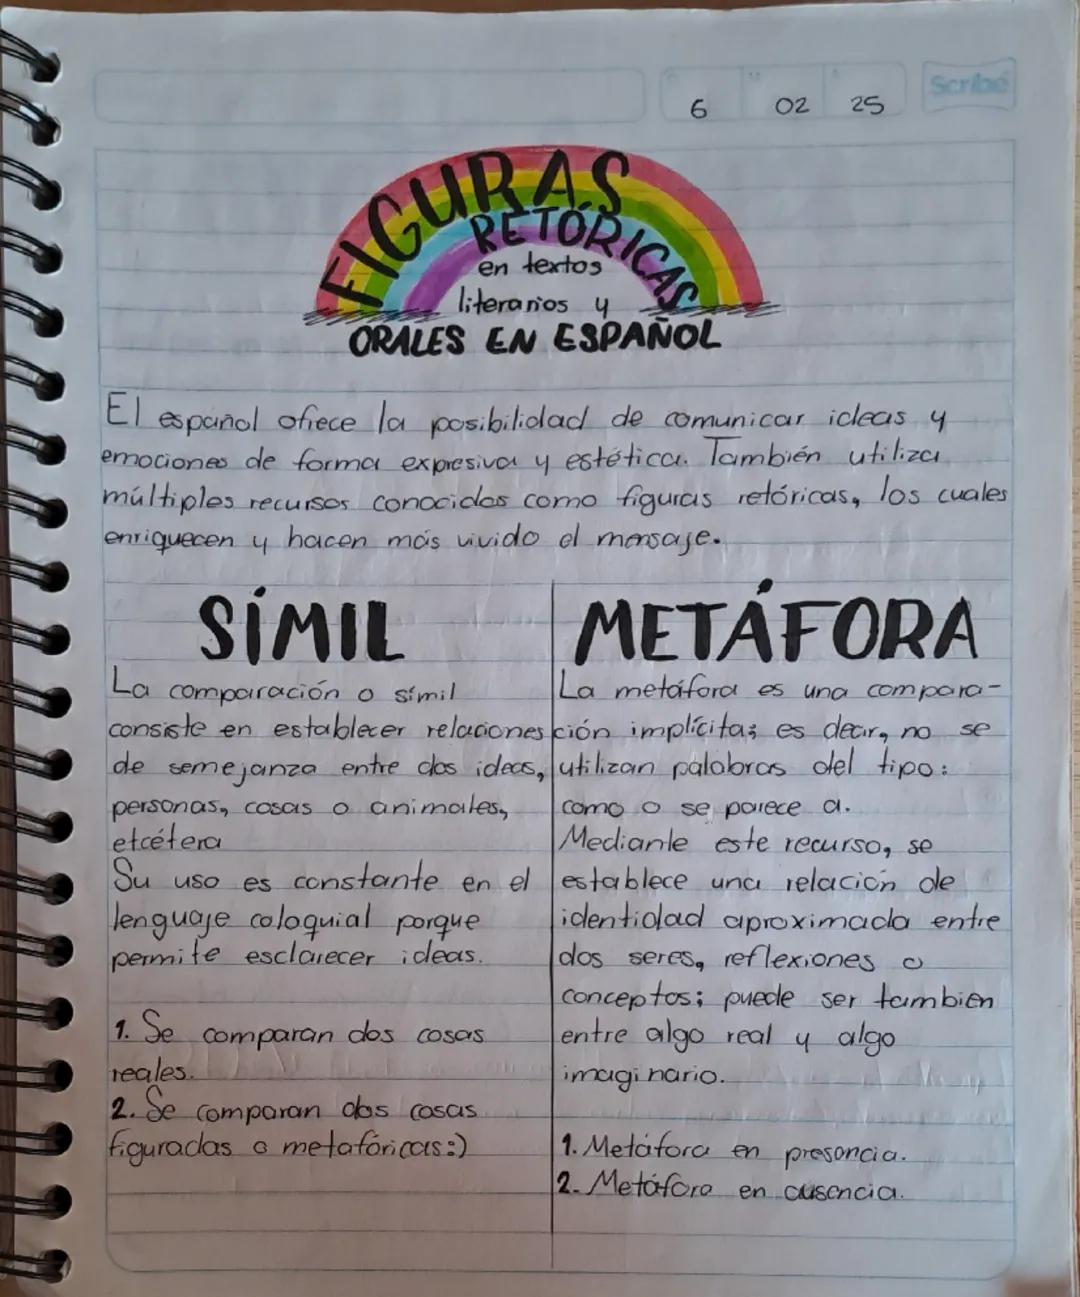 Scribe
6 02 25
FIGURAS
RETÓRICAS
en textos
literarios y
ORALES EN ESPAÑOL
El español ofrece la posibilidad de comunicar ideas y
emociones de forma expresiva y estética. También utiliza
múltiples recursos conocidos como figuras retóricas, los cuales
enriquecen y hacen más vivido el mensaje.
SÍMIL
La comparación o símil
consiste en establecer relaciones
de semejanza entre dos ideas,
personas, cosas o animales,
etcétera
Su uso es constante en el
lenguaje coloquial porque
permite esclarecer ideas.
1. Se comparan dos cosas
reales.
2. Se comparan dos cosas
figuradas o metafóricas:)
METÁFORA
La metáfora es una compara-
ción implícita; es decir, no se
utilizan palabras del tipo:
como o se parece a.
Mediante este recurso, se
establece una relación de
identidad aproximada entre
dos seres, reflexiones o
conceptos; puede ser tambien
entre algo real y algo
imaginario.
1. Metáfora en presencia.
2. Metáfora en ausencia.